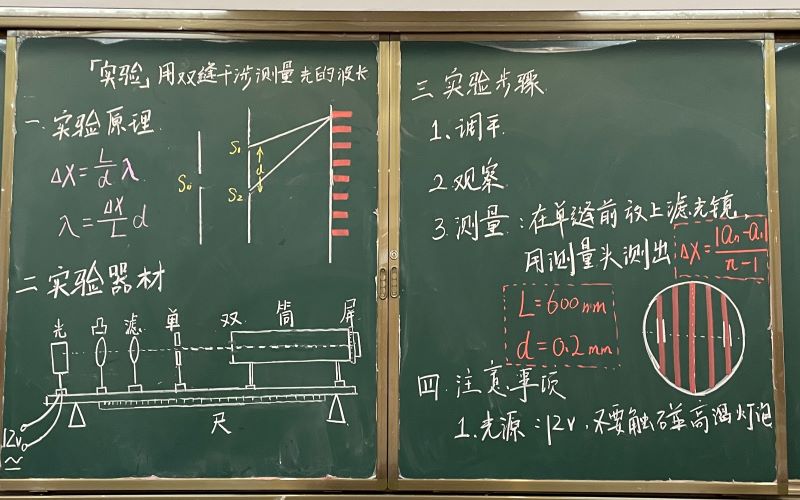 「实验」用双缝干涉测量光的波长
一 实验原理
ΔX=L/d λ
λ=ΔX/L d
S₀
S₁
d
S₂
二 实验器材
光 凸 滤 单 双 筒 屏
12V
~
尺
三 实验步骤
1、调平
2 观察
3.测量:在单缝前放上滤光镜
用测量头测出 ΔX=|aₙ-a₁|/n-1
L=600mm
d=0.2mm
四.注意事项
1.光源:12V,不要触碰高温灯泡